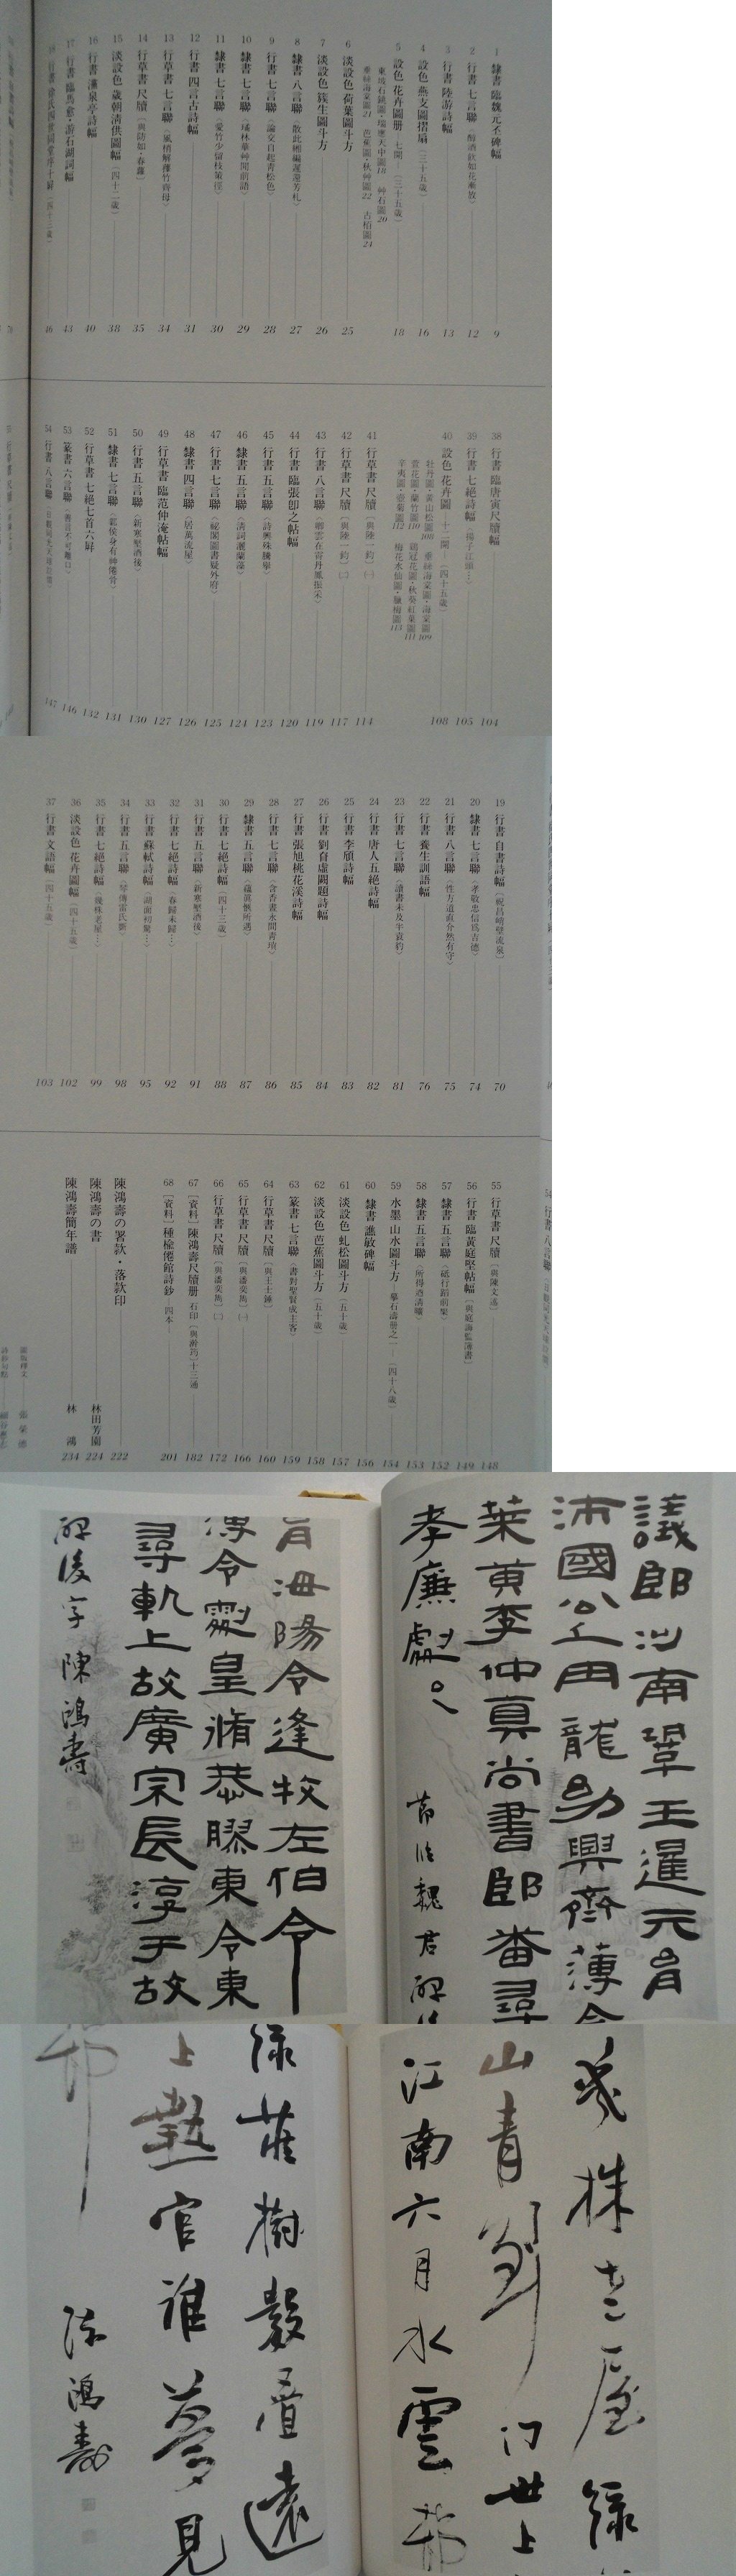 1 隸書 臨魏元丕碑幅 9
2 行書 七言聯 12
3 行書 陸游詩幅 13
4 設色 燕支圖摺扇（三十五歲） 16
5 設色 花卉圖册 七開―（三十五歲） 18
6 淡設色 荷葉圖斗方 25
7 淡設色 蔟生圖斗方 26
8 隸書 八言聯 27
9 行書 七言聯〈論交自起青松色〉 28
10 隸書 七言聯 29
11 隸書 七言聯〈愛竹少留枝策徑〉 30
12 行書 四言古詩幅 31
13 行草書 七言聯 34
14 行草書 尺牘 35
15 淡設色 歲朝清供圖幅（四十二歲） 38
16 行書 瀑泉亭詩幅 40
17 行書 臨馬愈・游石湖詞幅 43
38 行書 臨唐寅尺牘幅 104
39 行書 七絕詩幅〈揚子江頭…〉 105
40 設色 花卉圖 十二開―（四十五歲） 108
41 行草書 尺牘［與陸一鈞］㈠ 114
42 行草書 尺牘［與陸一鈞］㈡ 117
43 行書 八言聯 119
44 行書 臨張卽之帖幅 120
45 行書 五言聯〈詩興殊騰舉〉 123
46 隸書 五言聯〈清詞灑蘭藻〉 124
47 行書 七言聯〈祕閣圖書疑外府〉 125
48 隸書 四言聯〈居萬流屋〉 126
49 行草書 臨范仲淹帖幅 127
50 行書 五言聯〈新寒堅酒後〉 130
51 隸書 七言聯 131
52 行草書 七絕七首六屛 132
53 篆書 六言聯 146
54 行書 八言聯 147
19 行書 自書詩幅 70
20 隸書 七言聯〈孝敬忠信爲吉德〉 74
21 行書 八言聯〈性方道直介然有守〉 75
22 行書 養生訓語幅 76
23 行書 七言聯〈讀書未及半袁豹〉 81
24 行書 唐人五絕詩幅 82
25 行書 李頎詩幅 83
26 行書 劉眘虛闕題詩幅 84
27 行書 張旭桃花溪詩幅 85
28 行書 七言聯 86
29 隸書 五言聯〈蘊眞愜所遇〉 87
30 行書 七絕詩幅（四十三歲） 88
31 行書 五言聯〈新寒堅酒後〉 91
32 行書 七絕詩幅〈春歸未歸…〉 92
33 行書 蘇軾詩幅〈湖面初驚…〉 95
34 行書 五言聯〈琴傳雷氏斲〉 98
35 行書 七絕詩幅〈幾株老屋…〉 99
36 淡設色 花卉圖幅（四十五歲） 102
37 行書 文語幅（四十五歲） 103
55 行草書 尺牘［與陳文述］ 148
56 行書 臨黃庭堅帖幅 149
57 隸書 五言聯〈砥行蹈前榘〉 152
58 隸書 五言聯〈所得酒淸嚝〉 153
59 水墨 山水圖斗方―（四十八歲） 154
60 隸書 譙敏碑幅 156
61 淡設色 虬松圖斗方（五十歲） 157
62 淡設色 芭蕉圖斗方（五十歲） 158
63 篆書 七言聯〈書對聖賢成主客〉 159
64 行草書 尺牘［與王士錘］ 160
65 行草書 尺牘［與潘奕雋］㈠ 166
66 行草書 尺牘［與潘奕雋］㈡ 172
67 ［資料］陳鴻壽尺牘册 石印 十三通 182
68 ［資料］種楡僊館詩鈔―四本 201
陳鴻壽の署款・落款印 222
陳鴻壽の書 林田芳園 224
陳鴻壽簡年譜 林 鴻 234
議郎河南鞏王暹元肩
沛國公丘甪龍幼興齊薄令
萊黃李仲眞尙書郎番尋
孝廉劇。
節臨魏君碑
肩海陽令逢牧左伯令
薄令劇皇脩恭膠東令東
尋軌上故廣宗長淳于故
碑後字 陳鴻壽
幾株老屋綠
山青到門世上
江南六月水雲鄉
綠蔭樹數疊遠
上熱官誰夢見
鄉
陳鴻壽